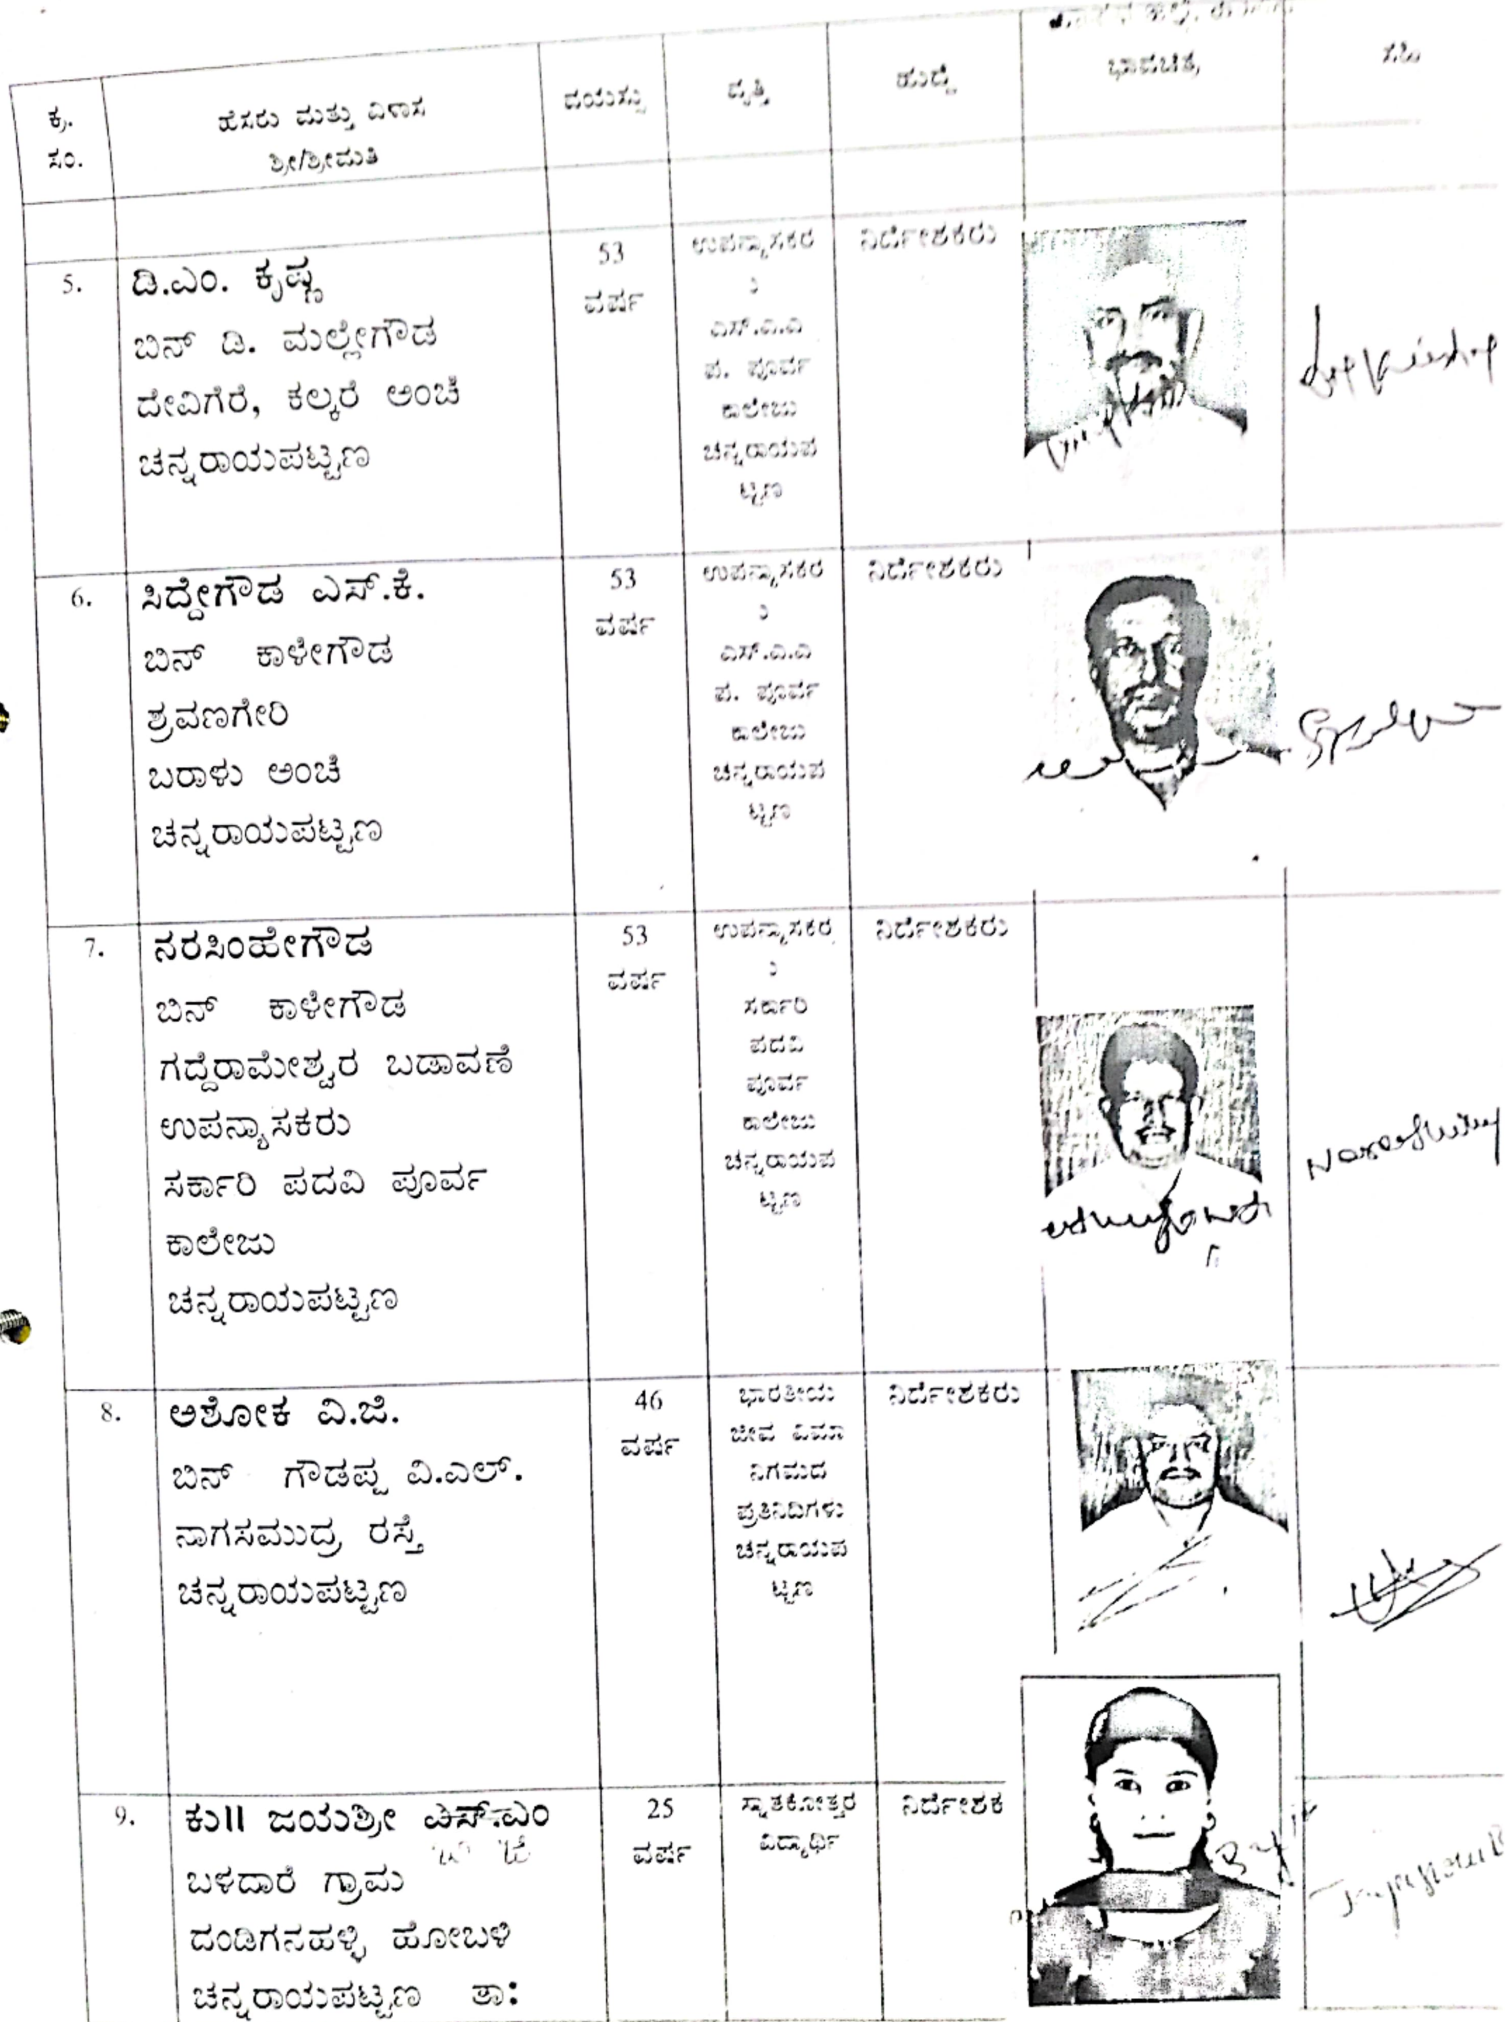 ಭಾವಚಿತ್ರ
ಸಹಿ
ಕ್ರ.
ಸಂ.
ಹೆಸರು ಮತ್ತು ವಿಳಾಸ
ಶ್ರೀ/ಶ್ರೀಮತಿ
ವಯಸ್ಸು
ವೃತ್ತಿ
ಹುದ್ದೆ
5.
ಡಿ.ಎಂ. ಕೃಷ್ಣ
ಬಿನ್ ಡಿ. ಮಲ್ಲೇಗೌಡ
ದೇವಿಗೆರೆ, ಕಲ್ಕರೆ ಅಂಚೆ
ಚನ್ನರಾಯಪಟ್ಟಣ
53
ವರ್ಷ
ಉಪನ್ಯಾಸಕರ
ು
ಎಸ್.ಎ.ಎ
ಪ. ಪೂರ್ವ
ಕಾಲೇಜು
ಚನ್ನರಾಯಪ
ಟ್ಟಣ
ನಿರ್ದೇಶಕರು
6.
ಸಿದ್ದೇಗೌಡ ಎಸ್.ಕೆ.
ಬಿನ್ ಕಾಳೇಗೌಡ
ಶ್ರವಣಗೇರಿ
ಬರಾಳು ಅಂಚೆ
ಚನ್ನರಾಯಪಟ್ಟಣ
53
ವರ್ಷ
ಉಪನ್ಯಾಸಕರ
ು
ಎಸ್.ಎ.ಎ
ಪ. ಪೂರ್ವ
ಕಾಲೇಜು
ಚನ್ನರಾಯಪ
ಟ್ಟಣ
ನಿರ್ದೇಶಕರು
7.
ನರಸಿಂಹೇಗೌಡ
ಬಿನ್ ಕಾಳೇಗೌಡ
ಗದ್ದೆರಾಮೇಶ್ವರ ಬಡಾವಣೆ
ಉಪನ್ಯಾಸಕರು
ಸರ್ಕಾರಿ ಪದವಿ ಪೂರ್ವ
ಕಾಲೇಜು
ಚನ್ನರಾಯಪಟ್ಟಣ
53
ವರ್ಷ
ಉಪನ್ಯಾಸಕರ
ು
ಸರ್ಕಾರಿ
ಪದವಿ
ಪೂರ್ವ
ಕಾಲೇಜು
ಚನ್ನರಾಯಪ
ಟ್ಟಣ
ನಿರ್ದೇಶಕರು
8.
ಅಶೋಕ ವಿ.ಜಿ.
ಬಿನ್ ಗೌಡಪ್ಪ ವಿ.ಎಲ್.
ನಾಗಸಮುದ್ರ ರಸ್ತೆ
ಚನ್ನರಾಯಪಟ್ಟಣ
46
ವರ್ಷ
ಭಾರತೀಯ
ಜೀವ ವಿಮಾ
ನಿಗಮದ
ಪ್ರತಿನಿದಿಗಳು
ಚನ್ನರಾಯಪ
ಟ್ಟಣ
ನಿರ್ದೇಶಕರು
9.
ಕು|| ಜಯಶ್ರೀ ಎಸ್.ಎಂ
ಬಳದಾರೆ ಗ್ರಾಮ
ದಂಡಿಗನಹಳ್ಳಿ ಹೋಬಳಿ
ಚನ್ನರಾಯಪಟ್ಟಣ ತಾ:
25
ವರ್ಷ
ಸ್ನಾತಕೋತ್ತರ
ವಿದ್ಯಾರ್ಥಿ
ನಿರ್ದೇಶಕ